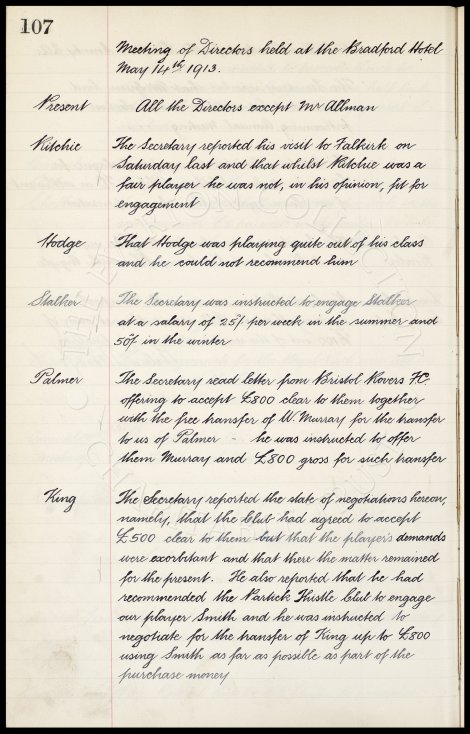 107
Meeting of Directors held at the Bradford Hotel
May 14th 1913.
Present All the Directors except Mr Allman
Ritchie The Secretary reported his visit to Falkirk on
Saturday last and that whilst Ritchie was a
fair player he was not, in his opinion, fit for
engagement
Hodge That Hodge was playing quite out of his class
and he could not recommend him
Stalker The Secretary was instructed to engage Stalker
at a salary of 25/ per week in the summer and
50/ in the winter
Palmer The Secretary read letter from Bristol Rovers F.C.
offering to accept £800 clear to them together
with the free transfer of W. Murray for the transfer
to us of Palmer - - he was instructed to offer
them Murray and £800 gross for such transfer
King The Secretary reported the state of negotiations hereon,
namely, that the Club had agreed to accept
£500 clear to them but that the player's demands
were exorbitant and that there the matter remained
for the present. He also reported that he had
recommended the Partick Thistle Club to engage
our player Smith and he was instructed to
negotiate for the transfer of King up to £800
using Smith as far as possible as part of the
purchase money